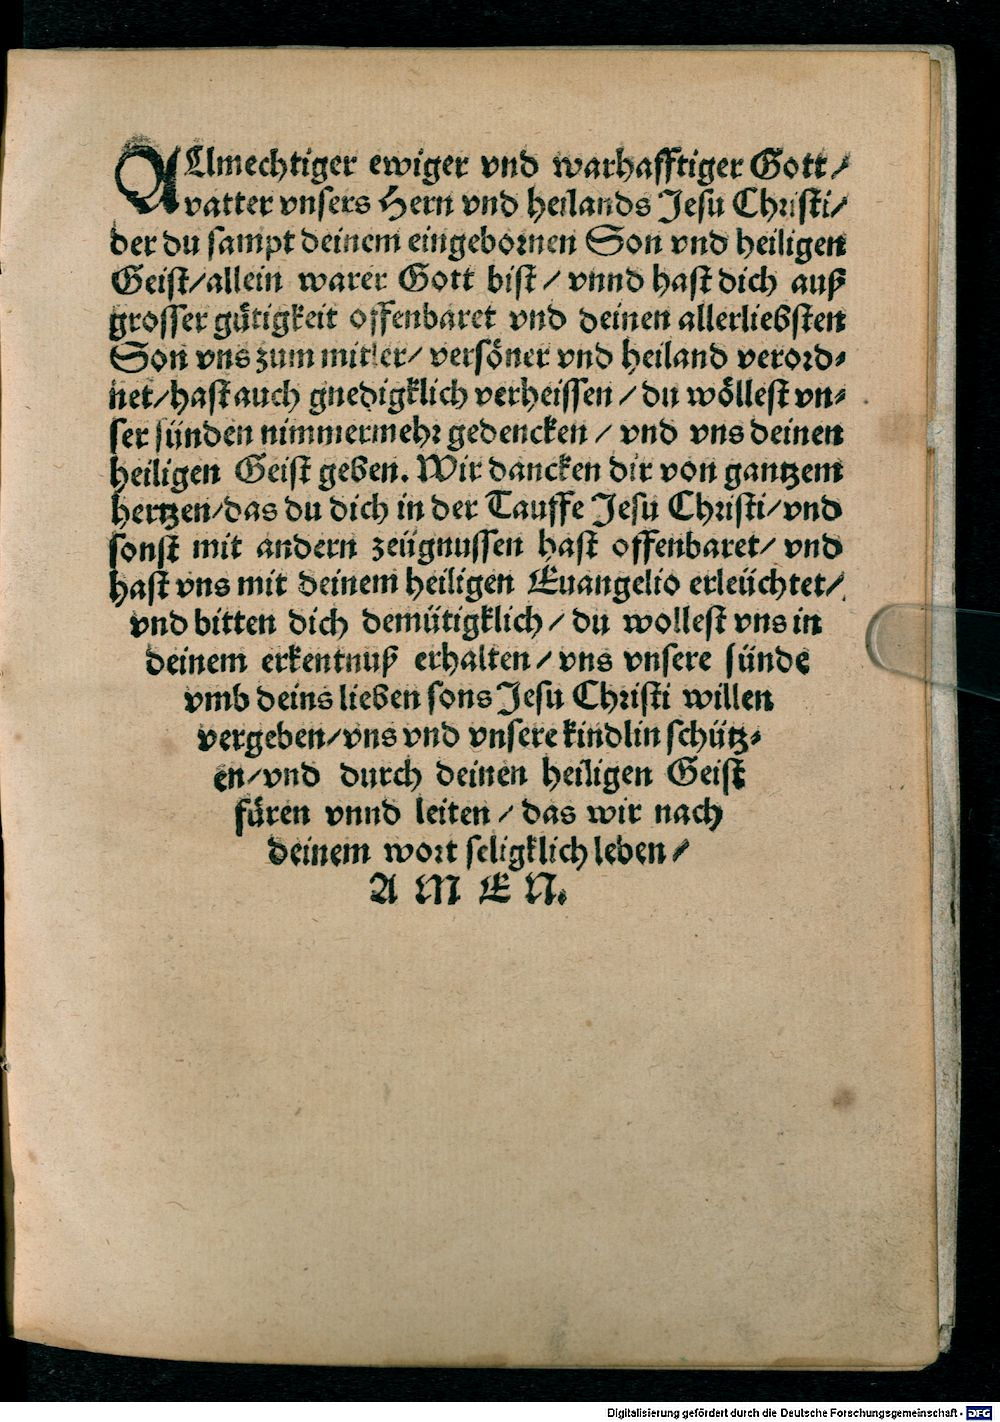 ALlmechtiger ewiger vnd warhafftiger Gott/
vatter vnsers Hern vnd heilands Jesu Christi/
der du sampt deinem eingebornen Son vnd heiligen
Geist/allein warer Gott bist/ vnnd hast dich auß
grosser gütigkeit offenbaret vnd deinen allerliebsten
Son vns zum mitler/ versöner vnd heiland verord-
net/hast auch gnedigklich verheissen/du wöllest vn-
ser sünden nimmermehr gedencken/ vnd vns deinen
heiligen Geist geben. Wir dancken dir von gantzem
hertzen/das du dich in der Tauffe Jesu Christi/vnd
sonst mit andern zeügnussen hast offenbaret/ vnd
hast vns mit deinem heiligen Euangelio erleüchtet/
vnd bitten dich demütigklich/ du wollest vns in
deinem erkentnuß erhalten/ vns vnsere sünde
vmb deins lieben sons Jesu Christi willen
vergeben/vns vnd vnsere kindlin schütz-
en/vnd durch deinen heiligen Geist
füren vnnd leiten/das wir nach
deinem wort seligklich leben/
A M E N.
Digitalisierung gefördert durch die Deutsche Forschungsgemeinschaft - DFG